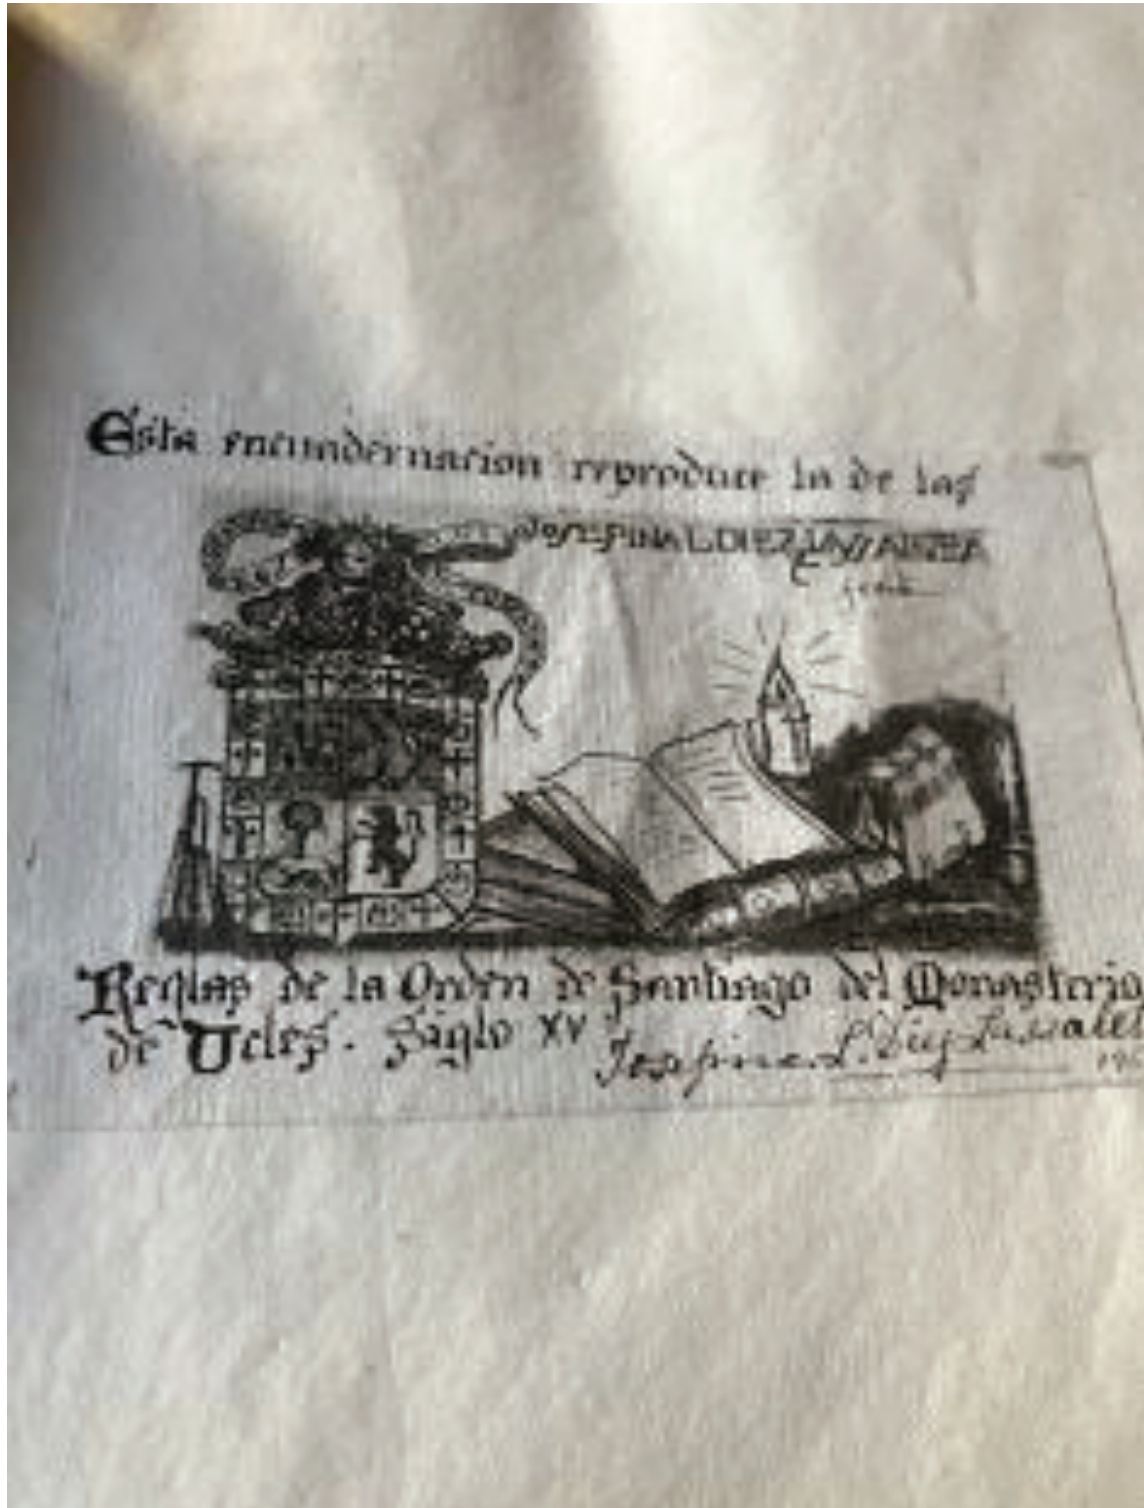 Esta encuadernacion reproduce la de las
JOSEFINA L. DIEZ LASSALETTA
Reglas de la Orden de Santiago del Monasterio
de Ucles. Siglo XV
Josefina L. Diez